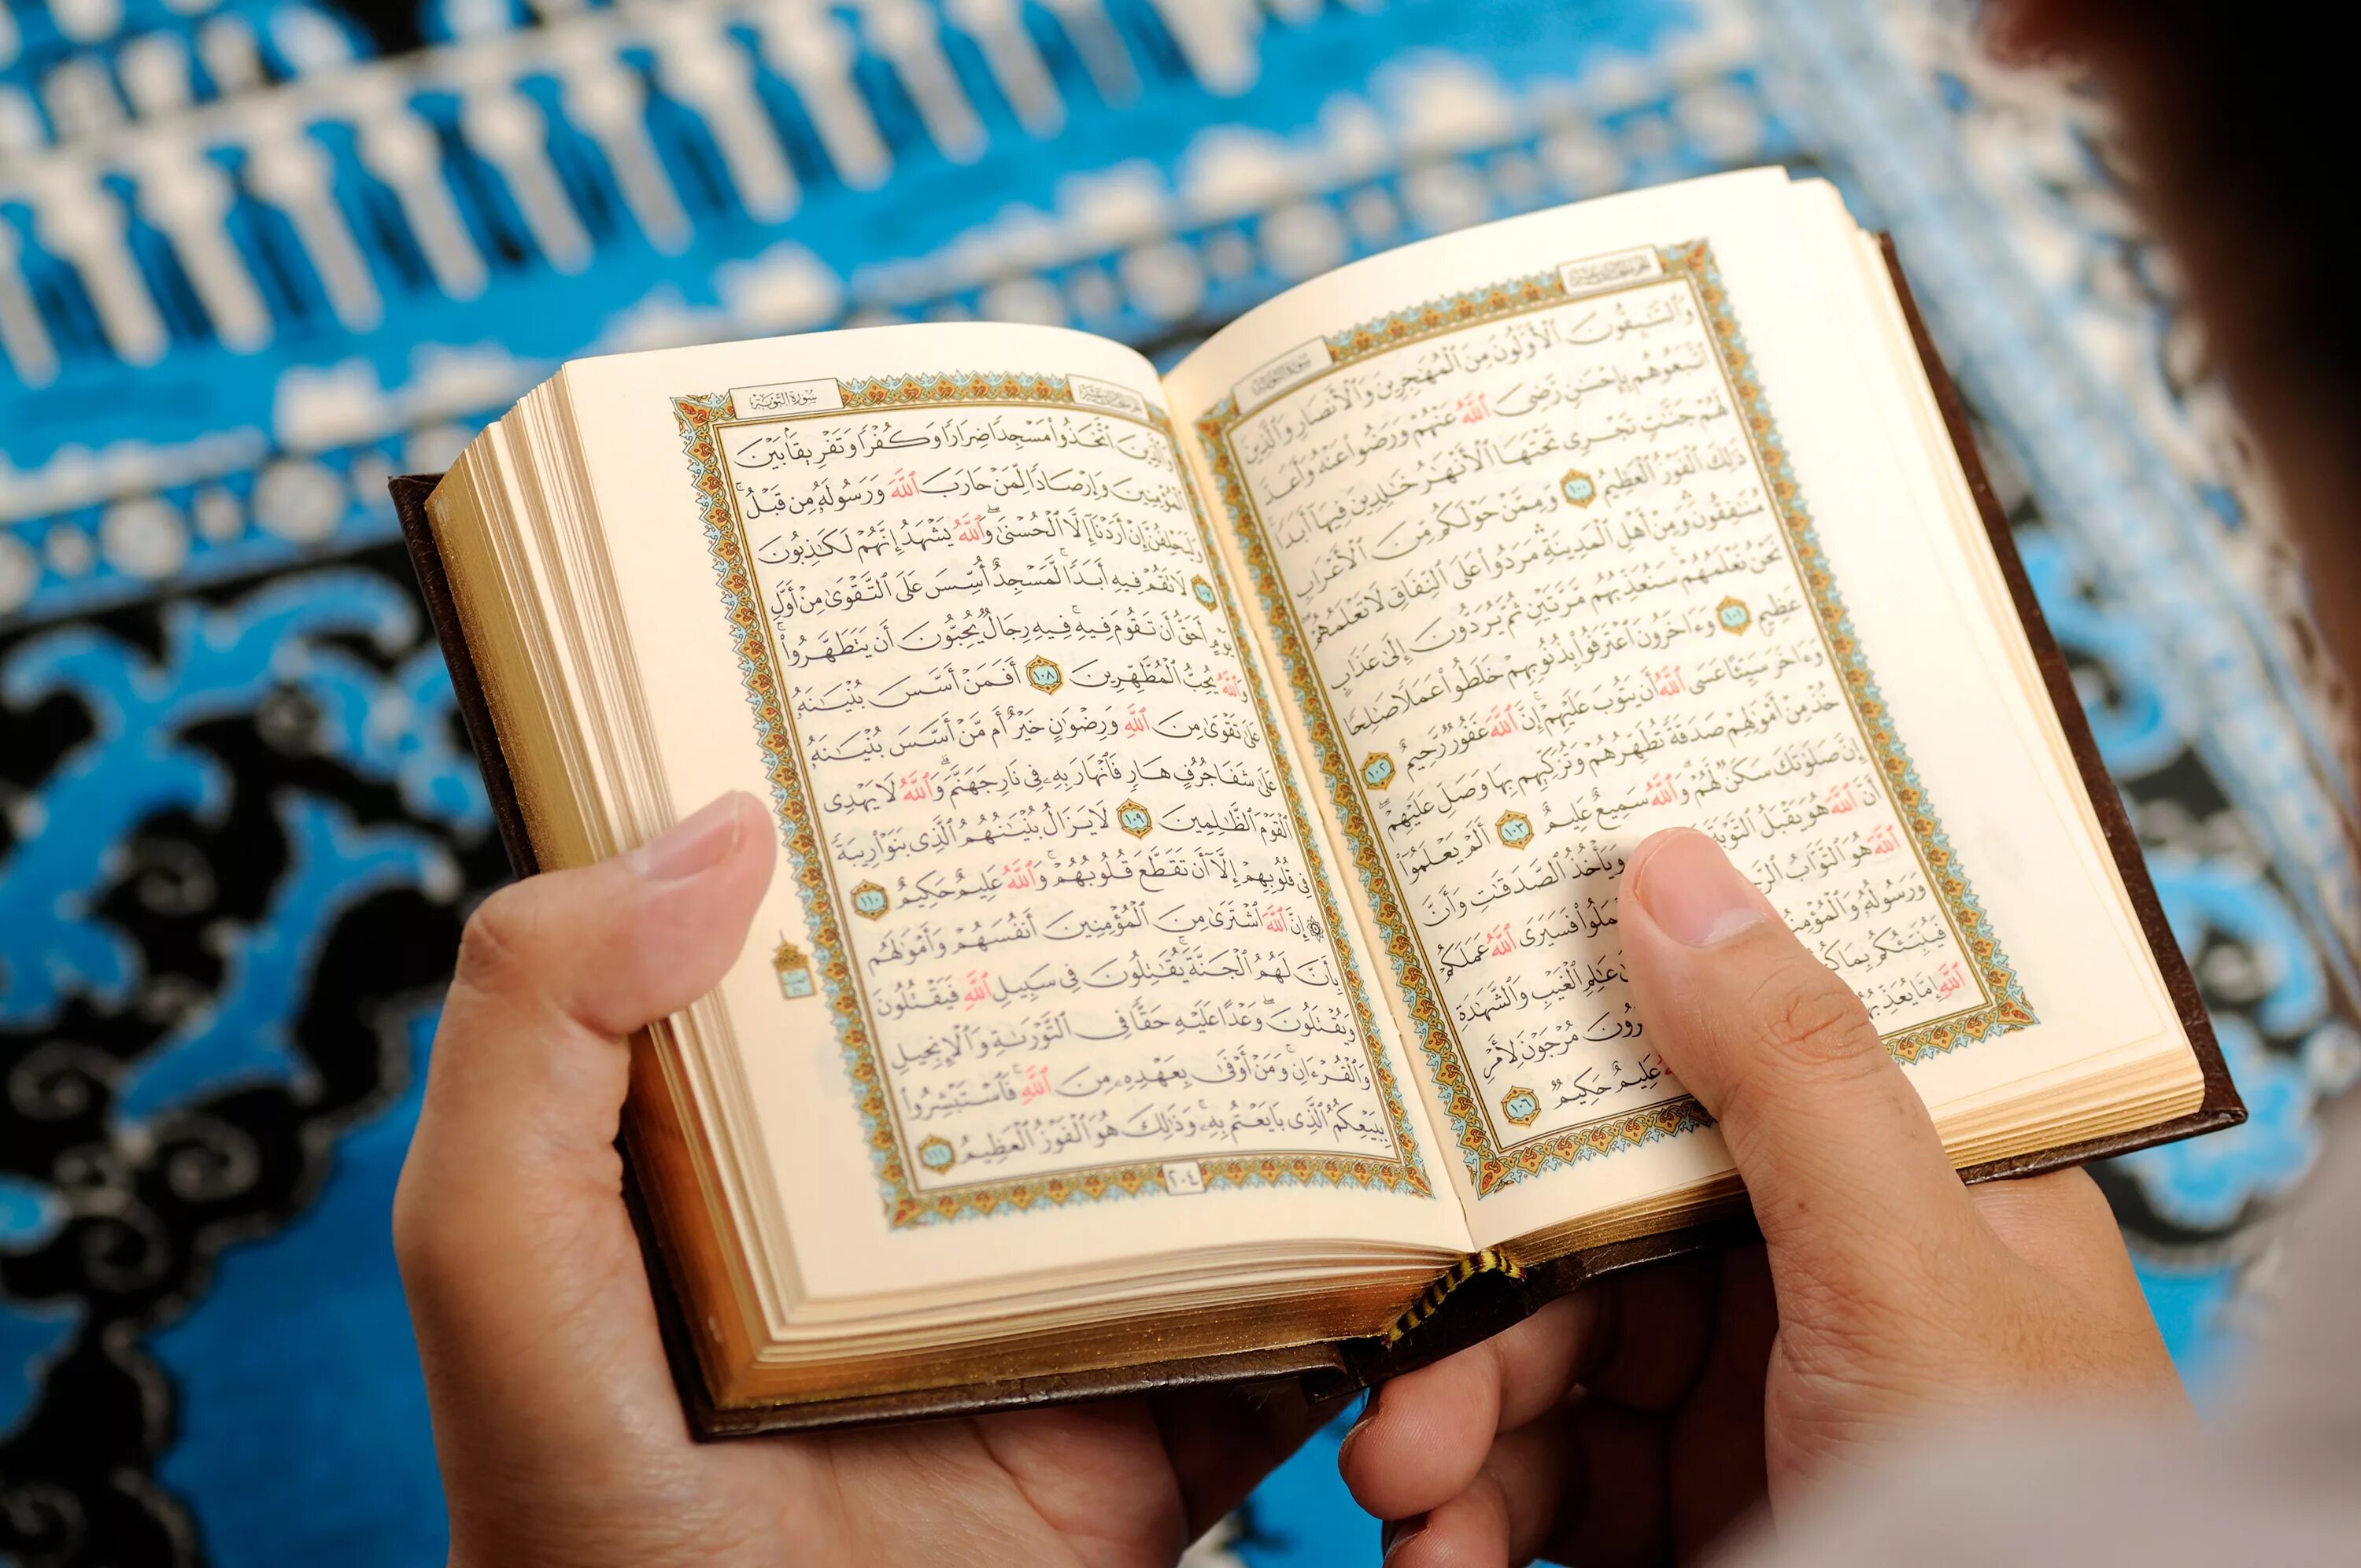 الجزء الحادي عشر
سورة التوبة
وَٱلسَّٰبِقُونَ ٱلۡأَوَّلُونَ مِنَ ٱلۡمُهَٰجِرِينَ وَٱلۡأَنصَارِ وَٱلَّذِينَ
ٱتَّبَعُوهُم بِإِحۡسَٰنٖ رَّضِيَ ٱللَّهُ عَنۡهُمۡ وَرَضُواْ عَنۡهُ وَأَعَدَّ
لَهُمۡ جَنَّٰتٖ تَجۡرِي تَحۡتَهَا ٱلۡأَنۡهَٰرُ خَٰلِدِينَ فِيهَآ أَبَدٗاۚ
ذَٰلِكَ ٱلۡفَوۡزُ ٱلۡعَظِيمُ ١٠٠ وَمِمَّنۡ حَوۡلَكُم مِّنَ ٱلۡأَعۡرَابِ
مُنَٰفِقُونَۖ وَمِنۡ أَهۡلِ ٱلۡمَدِينَةِ مَرَدُواْ عَلَى ٱلنِّفَاقِ لَا تَعۡلَمُهُمۡۖ
نَحۡنُ نَعۡلَمُهُمۡۚ سَنُعَذِّبُهُم مَّرَّتَيۡنِ ثُمَّ يُرَدُّونَ إِلَىٰ عَذَابٍ
عَظِيمٖ ١٠١ وَءَاخَرُونَ ٱعۡتَرَفُواْ بِذُنُوبِهِمۡ خَلَطُواْ عَمَلٗا صَٰلِحٗا
وَءَاخَرَ سَيِّئًا عَسَى ٱللَّهُ أَن يَتُوبَ عَلَيۡهِمۡۚ إِنَّ ٱللَّهَ غَفُورٞ رَّحِيمٌ ١٠٢
خُذۡ مِنۡ أَمۡوَٰلِهِمۡ صَدَقَةٗ تُطَهِّرُهُمۡ وَتُزَكِّيهِم بِهَا وَصَلِّ عَلَيۡهِمۡۖ
إِنَّ صَلَوٰتَكَ سَكَنٞ لَّهُمۡۗ وَٱللَّهُ سَمِيعٌ عَلِيمٌ ١٠٣ أَلَمۡ يَعۡلَمُوٓاْ
أَنَّ ٱللَّهَ هُوَ يَقۡبَلُ ٱلتَّوۡبَةَ وَيَأۡخُذُ ٱلصَّدَقَٰتِ وَأَنَّ
ٱللَّهَ هُوَ ٱلتَّوَّابُ فَسَيَرَى ٱللَّهُ عَمَلَكُمۡ
وَرَسُولُهُۥ عَٰلِمِ ٱلۡغَيۡبِ وَٱلشَّهَٰدَةِ
فَيُنَبِّئُكُم بِمَا مُرۡجَوۡنَ لِأَمۡرِ
ٱللَّهِ إِمَّا عَلِيمٌ حَكِيمٞ ١٠٦
الجزء الحادي عشر
سورة التوبة
وَٱلَّذِينَ ٱتَّخَذُواْ مَسۡجِدٗا ضِرَارٗا وَكُفۡرٗا وَتَفۡرِيقَۢا بَيۡنَ
ٱلۡمُؤۡمِنِينَ وَإِرۡصَادٗا لِّمَنۡ حَارَبَ ٱللَّهَ وَرَسُولَهُۥ مِن قَبۡلُۚ
وَلَيَحۡلِفُنَّ إِنۡ أَرَدۡنَآ إِلَّا ٱلۡحُسۡنَىٰۖ وَٱللَّهُ يَشۡهَدُ إِنَّهُمۡ لَكَٰذِبُونَ
١٠٧ لَا تَقُمۡ فِيهِ أَبَدٗاۚ لَّمَسۡجِدٌ أُسِّسَ عَلَى ٱلتَّقۡوَىٰ مِنۡ أَوَّلِ
يَوۡمٍ أَحَقُّ أَن تَقُومَ فِيهِۚ فِيهِ رِجَالٞ يُحِبُّونَ أَن يَتَطَهَّرُواْۚ
وَٱللَّهُ يُحِبُّ ٱلۡمُطَّهِّرِينَ ١٠٨ أَفَمَنۡ أَسَّسَ بُنۡيَٰنَهُۥ
عَلَىٰ تَقۡوَىٰ مِنَ ٱللَّهِ وَرِضۡوَٰنٍ خَيۡرٌ أَم مَّنۡ أَسَّسَ بُنۡيَٰنَهُۥ
عَلَىٰ شَفَا جُرُفٍ هَارٖ فَٱنۡهَارَ بِهِۦ فِي نَارِ جَهَنَّمَۗ وَٱللَّهُ لَا يَهۡدِي
ٱلۡقَوۡمَ ٱلظَّٰلِمِينَ ١٠٩ لَا يَزَالُ بُنۡيَٰنُهُمُ ٱلَّذِي بَنَوۡاْ رِيبَةٗ
فِي قُلُوبِهِمۡ إِلَّآ أَن تَقَطَّعَ قُلُوبُهُمۡۗ وَٱللَّهُ عَلِيمٌ حَكِيمٌ ١١٠
۞ إِنَّ ٱللَّهَ ٱشۡتَرَىٰ مِنَ ٱلۡمُؤۡمِنِينَ أَنفُسَهُمۡ وَأَمۡوَٰلَهُم
بِأَنَّ لَهُمُ ٱلۡجَنَّةَۚ يُقَٰتِلُونَ فِي سَبِيلِ ٱللَّهِ فَيَقۡتُلُونَ
وَيُقۡتَلُونَۖ وَعۡدًا عَلَيۡهِ حَقّٗا فِي ٱلتَّوۡرَىٰةِ وَٱلۡإِنجِيلِ
وَٱلۡقُرۡءَانِۚ وَمَنۡ أَوۡفَىٰ بِعَهۡدِهِۦ مِنَ ٱللَّهِۚ فَٱسۡتَبۡشِرُواْ
بِبَيۡعِكُمُ ٱلَّذِي بَايَعۡتُم بِهِۦۚ وَذَٰلِكَ هُوَ ٱلۡفَوۡزُ ٱلۡعَظِيمُ ١١١
٢٠٤